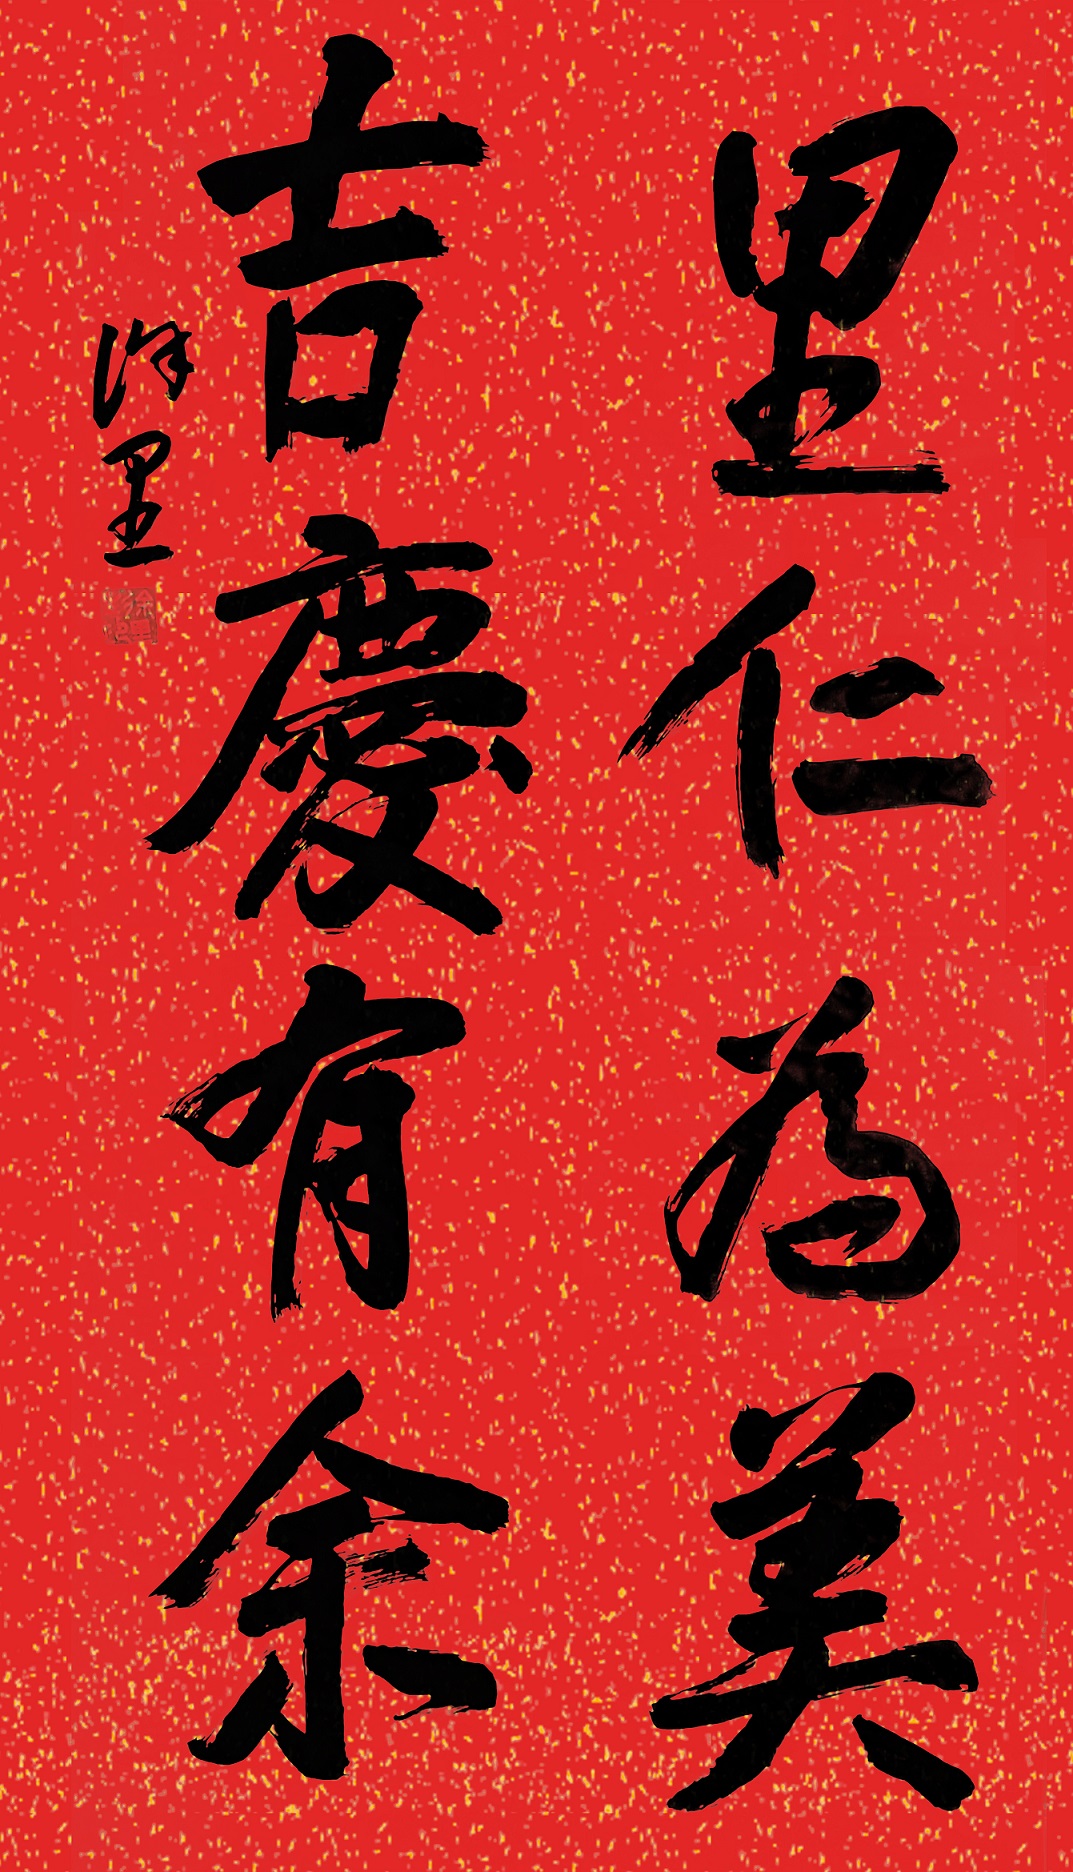 里仁為美
吉慶有余
徐里